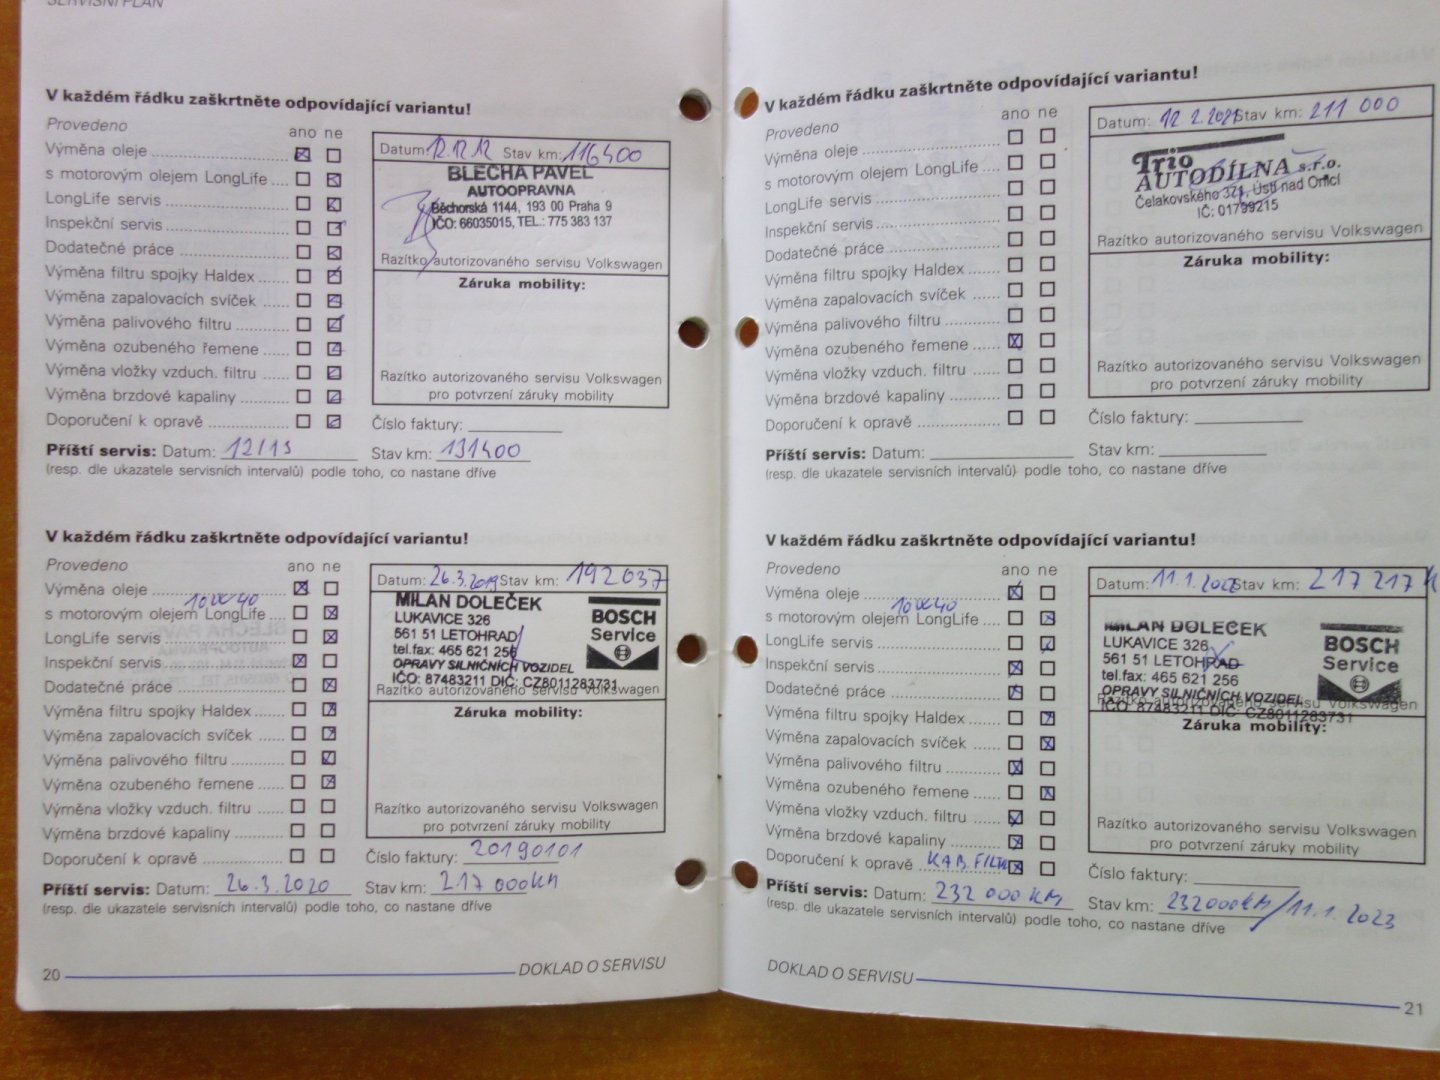 SERVISNÍ PLÁN
V každém řádku zaškrtněte odpovídající variantu!
Provedeno ano ne
Výměna oleje
s motorovým olejem LongLife
LongLife servis
Inspekční servis
Dodatečné práce
Výměna filtru spojky Haldex
Výměna zapalovacích svíček
Výměna palivového filtru
Výměna ozubeného řemene
Výměna vložky vzduch. filtru
Výměna brzdové kapaliny
Doporučení k opravě
Datum: 12.12.12 Stav km: 116400
BLECHA PAVEL
AUTOOPRAVNA
Běchorská 1144, 193 00 Praha 9
IČO: 66035015, TEL.: 775 383 137
Razítko autorizovaného servisu Volkswagen
Záruka mobility:
Razítko autorizovaného servisu Volkswagen
pro potvrzení záruky mobility
Číslo faktury:
Příští servis: Datum: 12/13 Stav km: 131400
(resp. dle ukazatele servisních intervalů) podle toho, co nastane dříve
V každém řádku zaškrtněte odpovídající variantu!
Provedeno ano ne
Výměna oleje
10W40
s motorovým olejem LongLife
LongLife servis
Inspekční servis
Dodatečné práce
Výměna filtru spojky Haldex
Výměna zapalovacích svíček
Výměna palivového filtru
Výměna ozubeného řemene
Výměna vložky vzduch. filtru
Výměna brzdové kapaliny
Doporučení k opravě
Datum: 26.3.2019 Stav km: 192037
MILAN DOLEČEK
LUKAVICE 326
561 51 LETOHRAD
tel.fax: 465 621 256
OPRAVY SILNIČNÍCH VOZIDEL
IČO: 87483211 DIČ: CZ8011283731
BOSCH
Service
Razítko autorizovaného servisu Volkswagen
Záruka mobility:
Razítko autorizovaného servisu Volkswagen
pro potvrzení záruky mobility
Číslo faktury: 20190101
Příští servis: Datum: 26.3.2020 Stav km: 217 000KM
(resp. dle ukazatele servisních intervalů) podle toho, co nastane dříve
20 DOKLAD O SERVISU
V každém řádku zaškrtněte odpovídající variantu!
Provedeno ano ne
Výměna oleje
s motorovým olejem LongLife
LongLife servis
Inspekční servis
Dodatečné práce
Výměna filtru spojky Haldex
Výměna zapalovacích svíček
Výměna palivového filtru
Výměna ozubeného řemene
Výměna vložky vzduch. filtru
Výměna brzdové kapaliny
Doporučení k opravě
Datum: 12.2.2021 Stav km: 211 000
Trio
AUTODÍLNA s.r.o.
Čelakovského 371, Ústí nad Orlicí
IČ: 01799215
Razítko autorizovaného servisu Volkswagen
Záruka mobility:
Razítko autorizovaného servisu Volkswagen
pro potvrzení záruky mobility
Číslo faktury:
Příští servis: Datum: Stav km:
(resp. dle ukazatele servisních intervalů) podle toho, co nastane dříve
V každém řádku zaškrtněte odpovídající variantu!
Provedeno ano ne
Výměna oleje
10W40
s motorovým olejem LongLife
LongLife servis
Inspekční servis
Dodatečné práce
Výměna filtru spojky Haldex
Výměna zapalovacích svíček
Výměna palivového filtru
Výměna ozubeného řemene
Výměna vložky vzduch. filtru
Výměna brzdové kapaliny
Doporučení k opravě KAB. FILTR
Datum: 11.1.2022 Stav km: 217 217 K
MILAN DOLEČEK
LUKAVICE 326
561 51 LETOHRAD
tel.fax: 465 621 256
OPRAVY SILNIČNÍCH VOZIDEL
IČO: 87483211 DIČ: CZ8011283731
BOSCH
Service
Razítko autorizovaného servisu Volkswagen
Záruka mobility:
Razítko autorizovaného servisu Volkswagen
pro potvrzení záruky mobility
Číslo faktury:
Příští servis: Datum: 232 000 KM Stav km: 232000KM/11.1.2023
(resp. dle ukazatele servisních intervalů) podle toho, co nastane dříve
DOKLAD O SERVISU 21